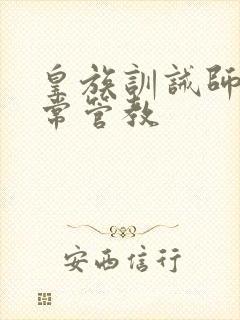 皇族訓誡師
常管教
安西信行